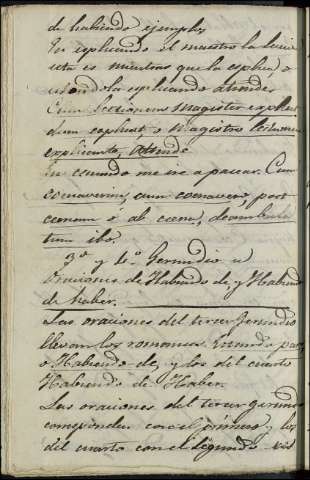 de habiendo ejemplos
En esplicando el maestro la licion
esto es mientras que la esplica, o
estandola esplicando atiendes
Cum lectionem Magister explicat
dum explicat o Magistro lectionem
explicante, atende
En cenando me ire a pasear. Cum
coenaverim, cum coenavero, post
coenam o ab coena, deambula
tum ibo.
3º y 4º Gerundio u
Oraciones de Habiendo de, y Habiendo
de haber.
Las oraciones del tercer Gerundio
llevan los romances Estando para,
o Habiendo de, y los del cuarto
Habiendo de Haber.
Las oraciones del tercer gerundio
corresponden con el primero y las
del cuarto con el segundo